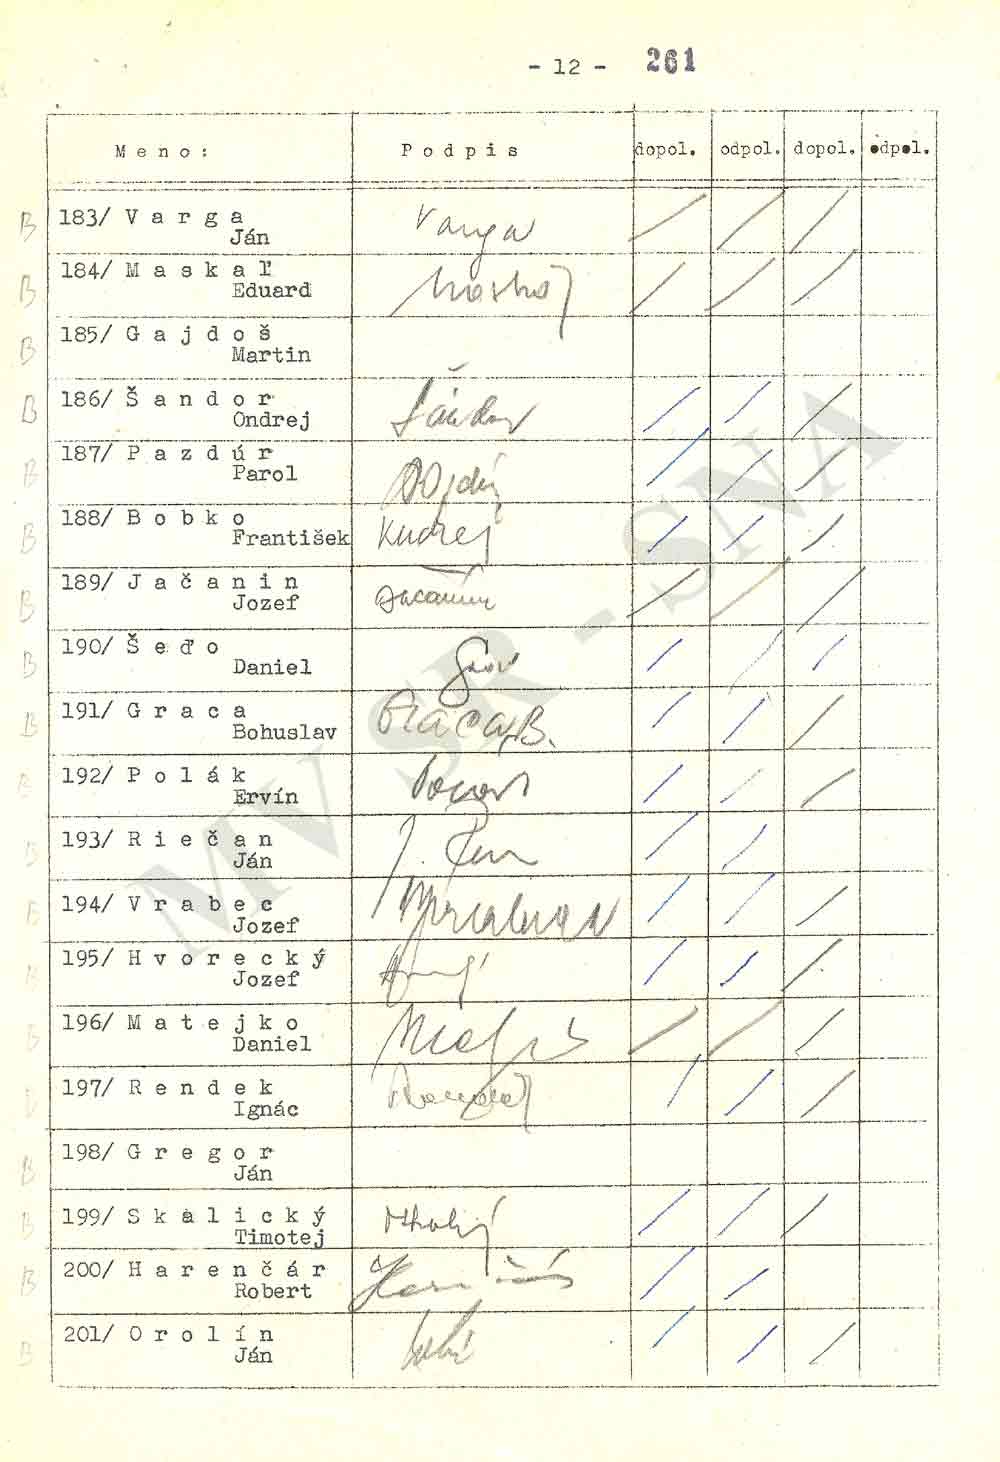 - 12 - 261
Meno: Podpis dopol. odpol. dopol. odpol.
B 183/ Varga Varga
Ján
B 184/ Maskaľ
Eduard
B 185/ Gajdoš
Martin
B 186/ Šandor
Ondrej
B 187/ Pazdúr
Parol
B 188/ Bobko
František
B 189/ Jačanin Jačanin
Jozef
B 190/ Šeďo
Daniel
B 191/ Graca Graca B.
Bohuslav
B 192/ Polák
Ervín
B 193/ Riečan
Ján
B 194/ Vrabec
Jozef
B 195/ Hvorecký
Jozef
B 196/ Matejko
Daniel
B 197/ Rendek
Ignác
B 198/ Gregor
Ján
B 199/ Skalický
Timotej
B 200/ Harenčár
Robert
B 201/ Orolín
Ján
MV SR - SNA